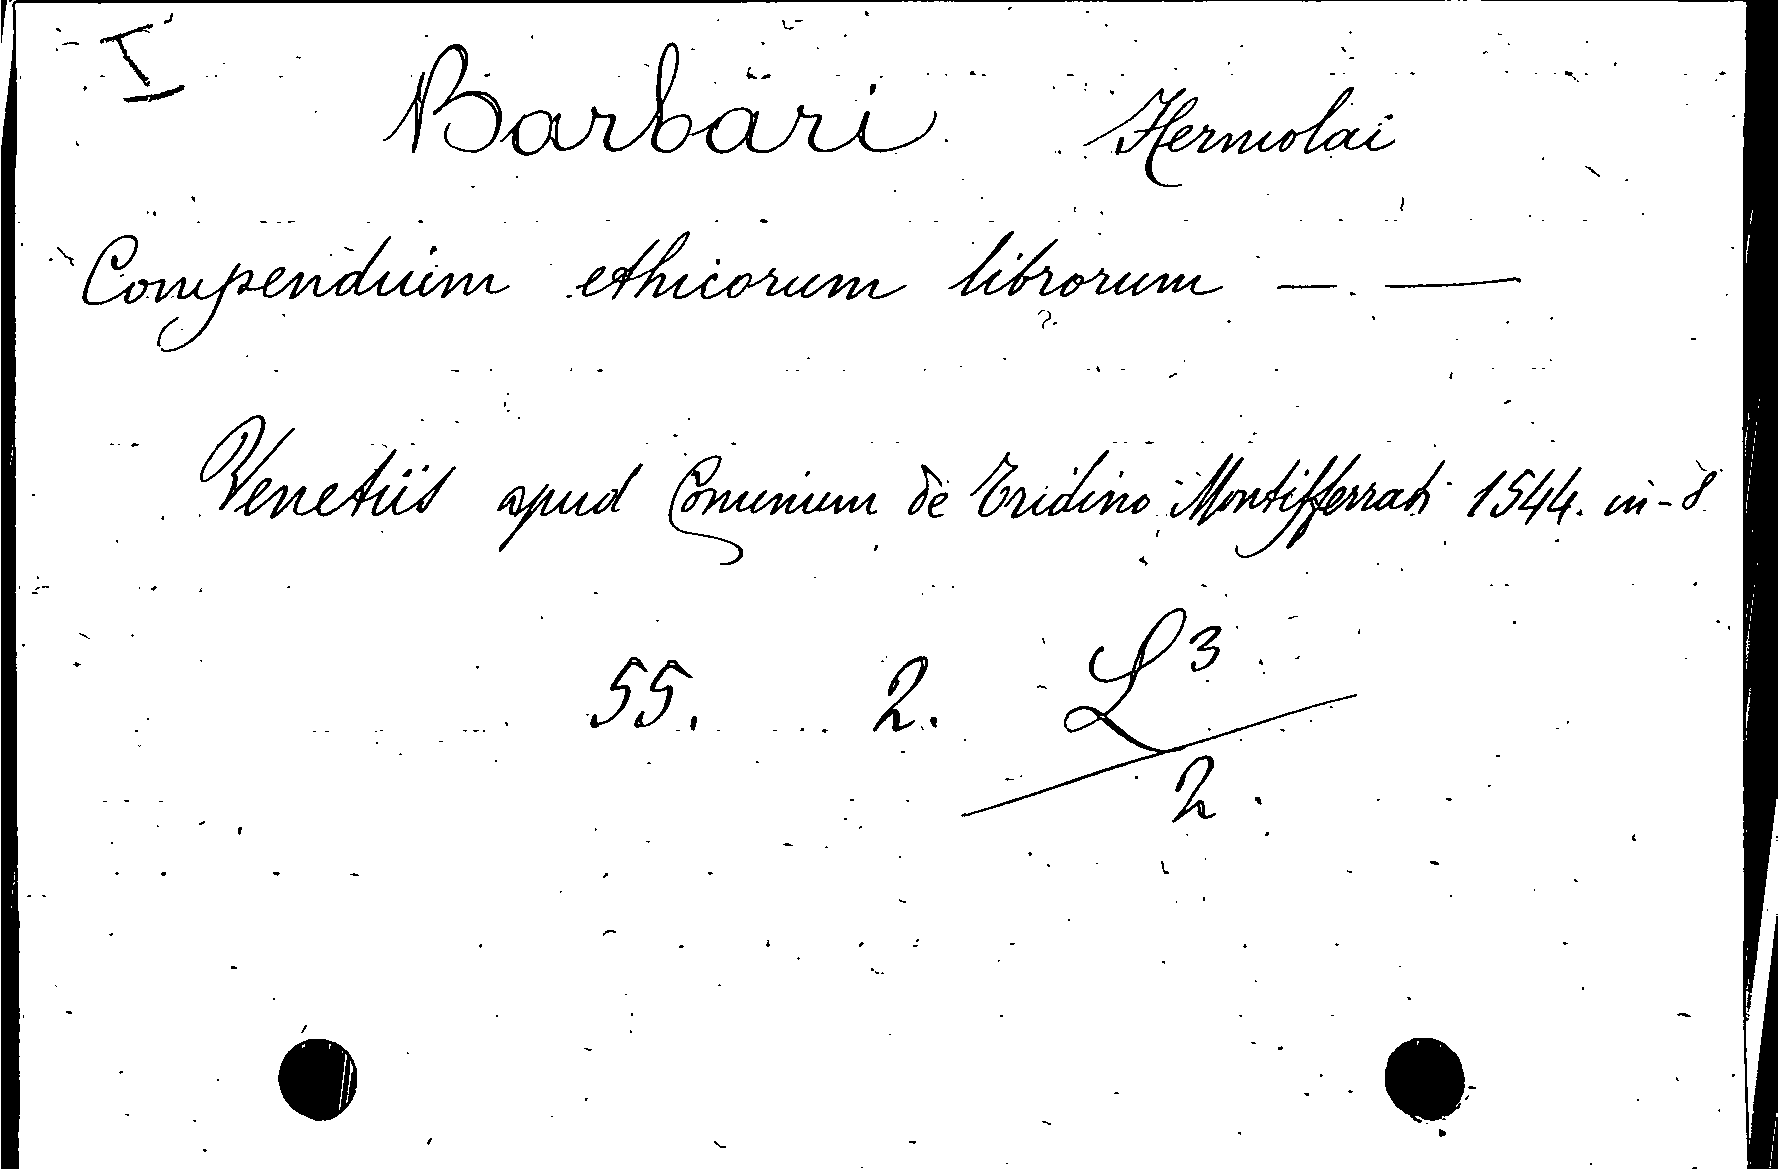 I
Barbari Hermolai
Compendium ethicorum librorum — . —
Venetiis apud Cominum de Tridino Montifferrati 1544. in-8
55. 2. L3
2.